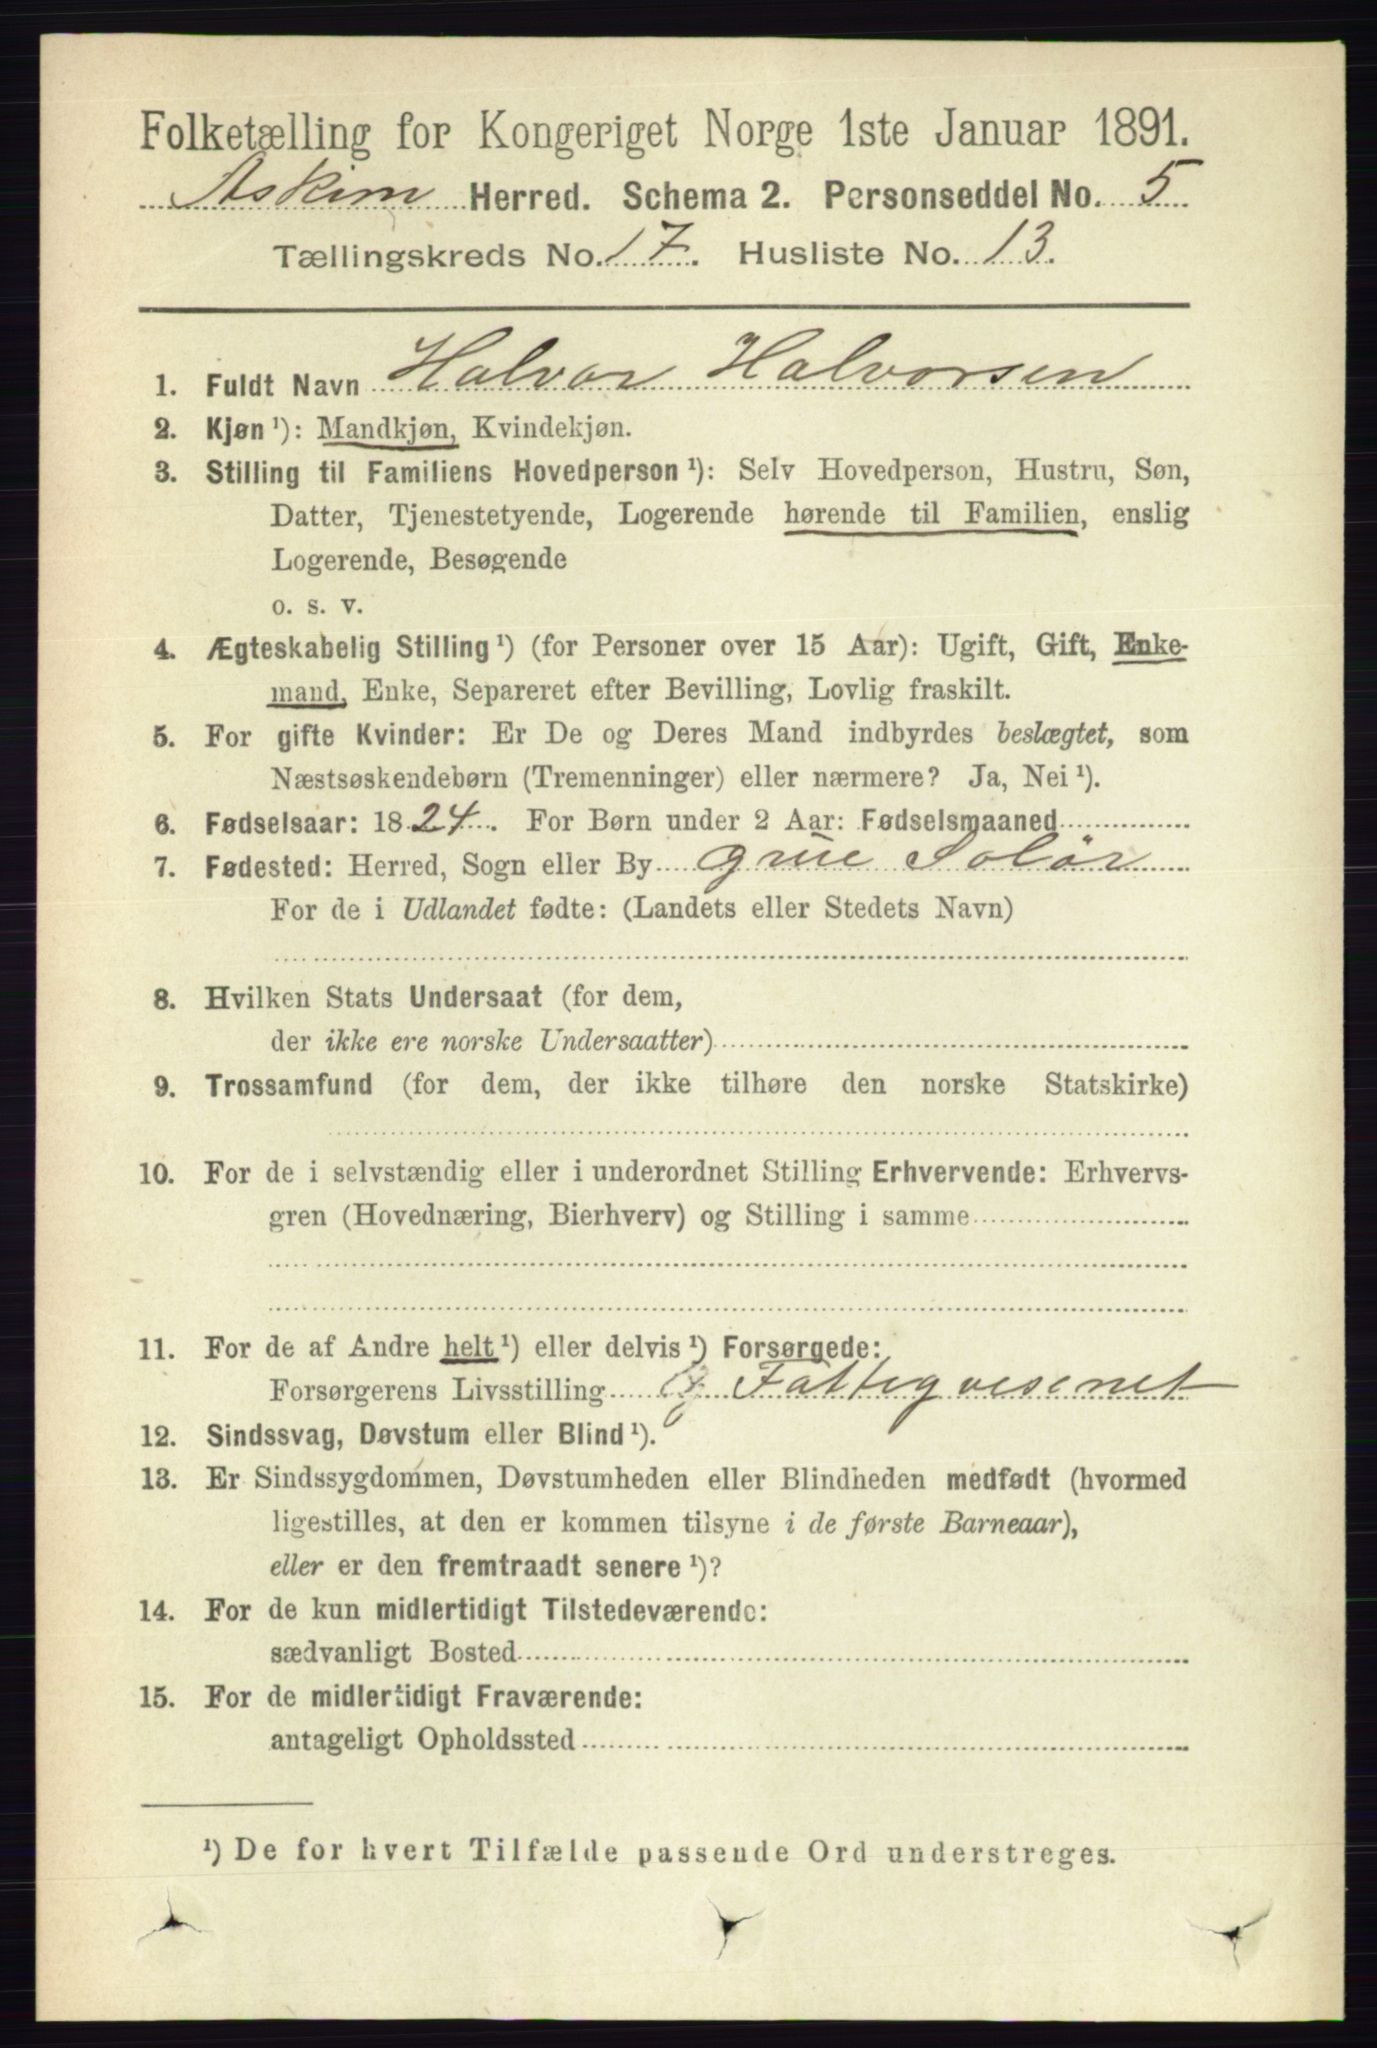 Folketælling for Kongeriget Norge 1ste Januar 1891.
Askim Herred. Schema 2. Personseddel No. 5
Tællingskreds No. 17. Husliste No. 13.
1. Fuldt Navn Halvor Halvorsen
2. Kjøn ¹): Mandkjøn, Kvindekjøn.
3. Stilling til Familiens Hovedperson ¹): Selv Hovedperson, Hustru, Søn,
Datter, Tjenestetyende, Logerende hørende til Familien, enslig
Logerende, Besøgende
o. s. v.
4. Ægteskabelig Stilling ¹) (for Personer over 15 Aar): Ugift, Gift, Enke-
mand, Enke, Separeret efter Bevilling, Lovlig fraskilt.
5. For gifte Kvinder: Er De og Deres Mand indbyrdes beslægtet, som
Næstsøskendebørn (Tremenninger) eller nærmere? Ja, Nei ¹).
6. Fødselsaar: 1824. For Børn under 2 Aar: Fødselsmaaned
7. Fødested: Herred, Sogn eller By Grue Solør
For de i Udlandet fødte: (Landets eller Stedets Navn)
8. Hvilken Stats Undersaat (for dem,
der ikke ere norske Undersaatter)
9. Trossamfund (for dem, der ikke tilhøre den norske Statskirke)
10. For de i selvstændig eller i underordnet Stilling Erhvervende: Erhvervs-
gren (Hovednæring, Bierhverv) og Stilling i samme
11. For de af Andre helt ¹) eller delvis ¹) Forsørgede:
Forsørgerens Livsstilling af Fattigvesenet
12. Sindssvag, Døvstum eller Blind ¹).
13. Er Sindssygdommen, Døvstumheden eller Blindheden medfødt (hvormed
ligestilles, at den er kommen tilsyne i de første Barneaar),
eller er den fremtraadt senere ¹)?
14. For de kun midlertidigt Tilstedeværende:
sædvanligt Bosted
15. For de midlertidigt Fraværende:
antageligt Opholdssted
¹) De for hvert Tilfælde passende Ord understreges.